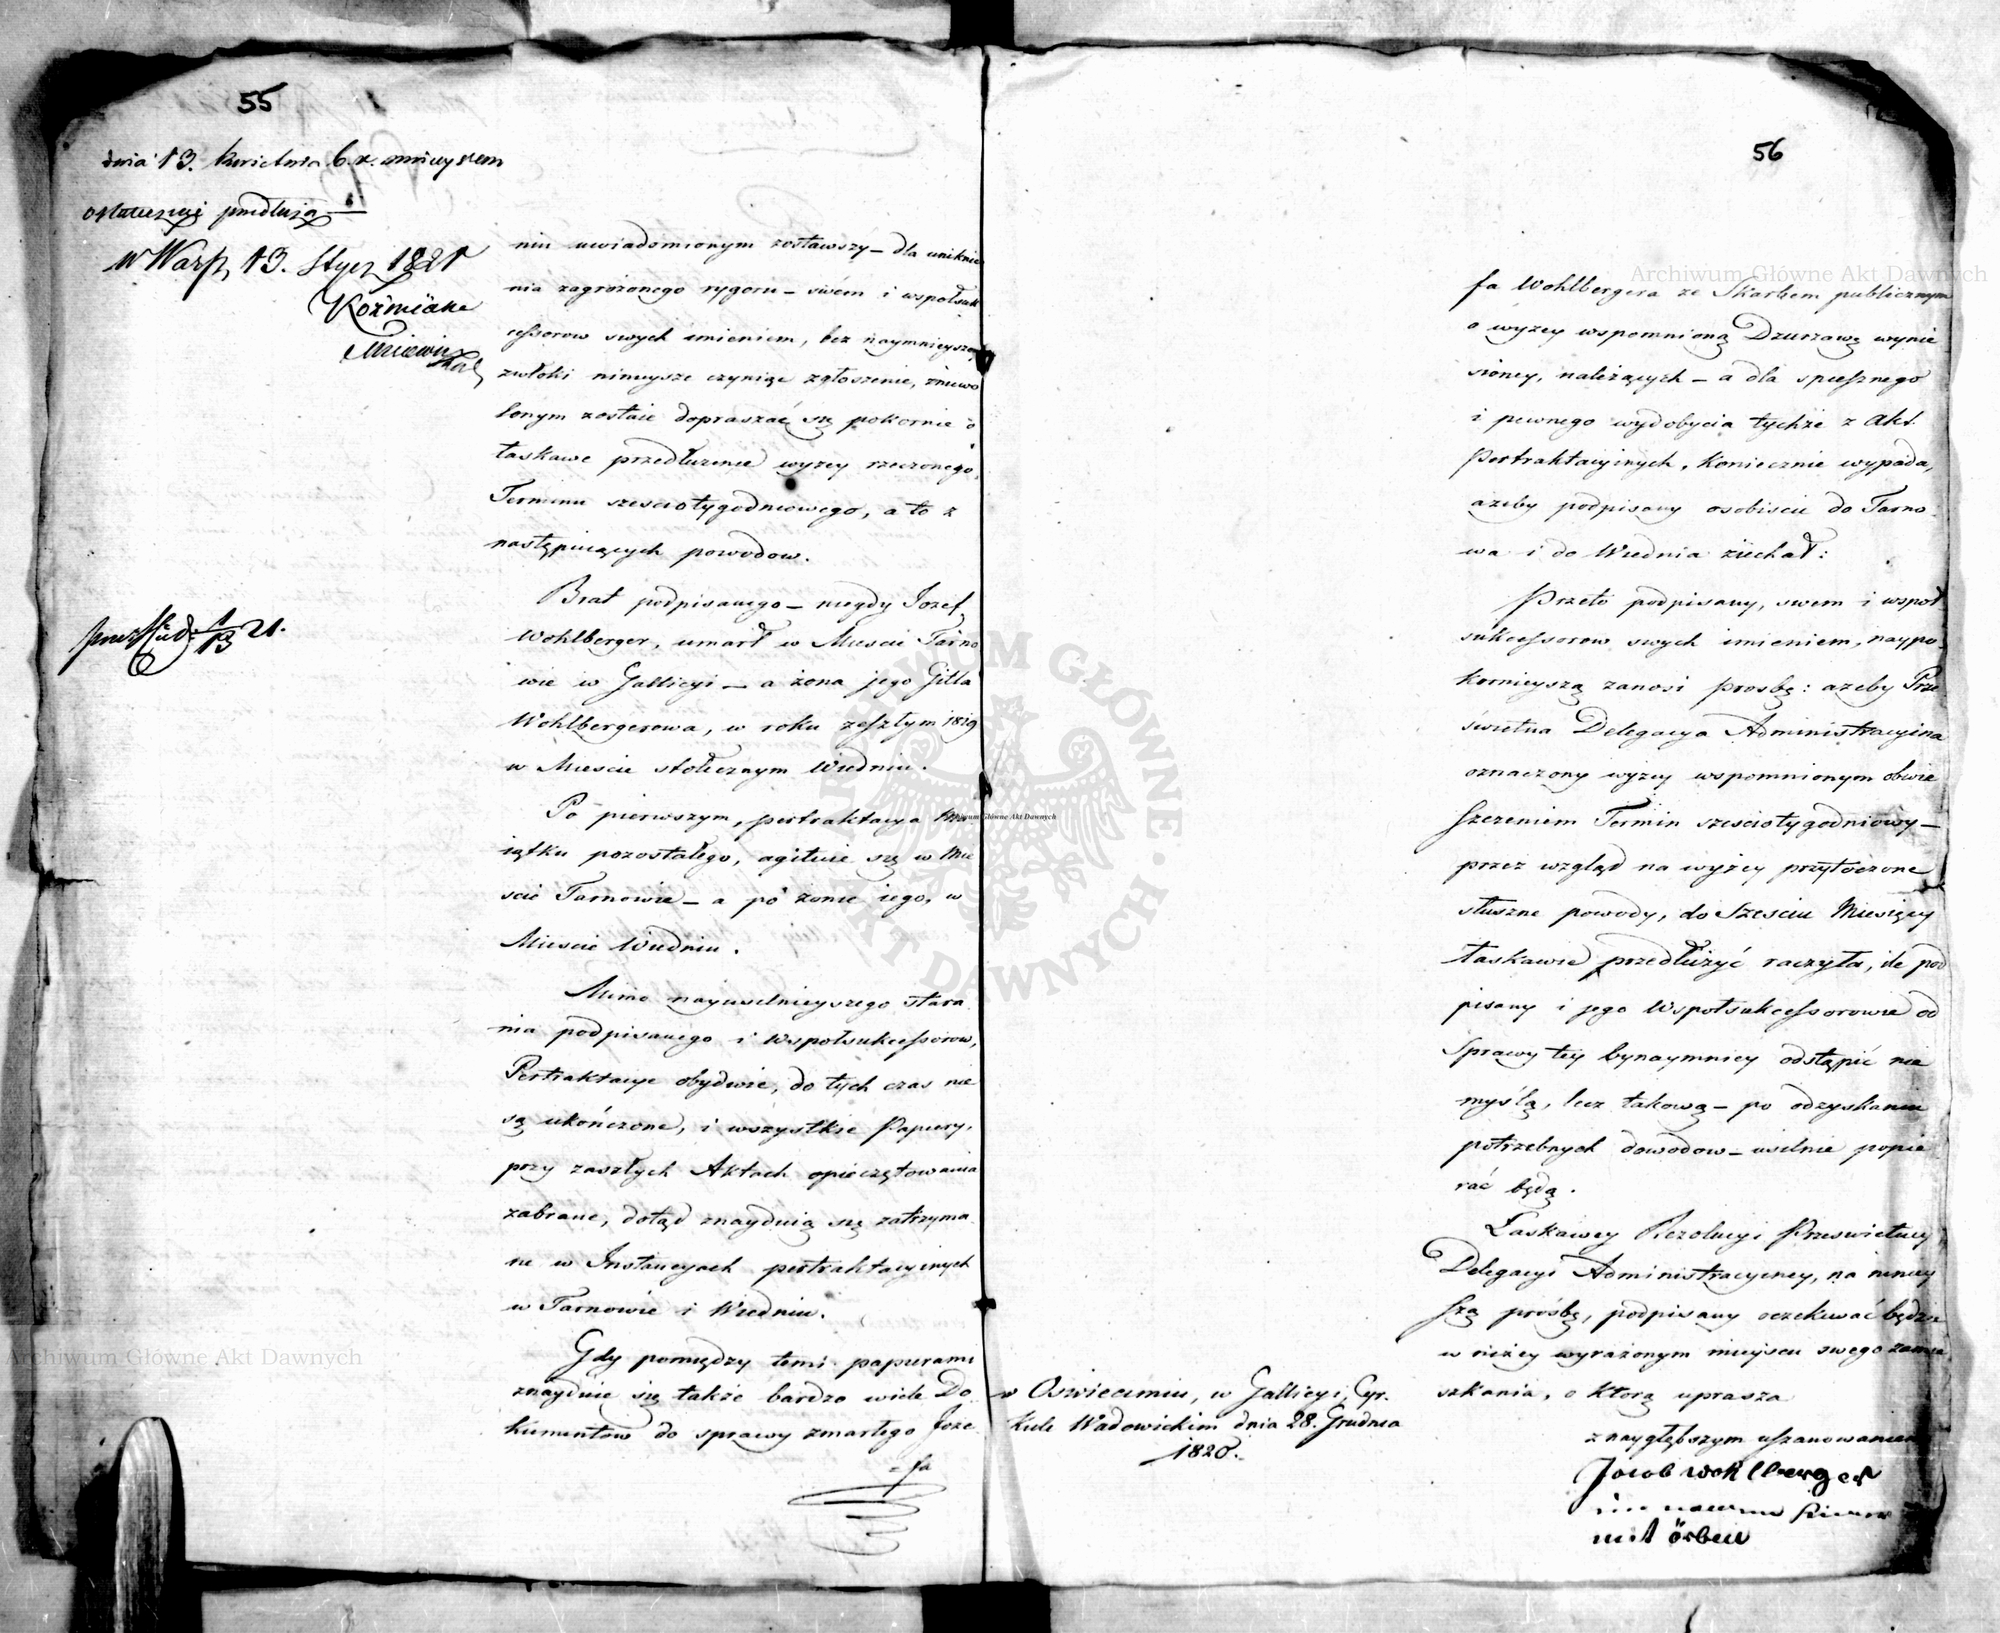 55
dnia 13. kwietnia b.r.
ostatecznie przedłuża
w Warsz, 13. Stycz 1821
Koźmian
niu uwiadomionym zostawszy – dla uniknie
nia zagrożonego rygoru – swém i wspołsuk
cessorow swych imieniem, bez naymnieyszey
zwłoki ninieysze czyniąc zgłoszenie, zniewo
lonym zostaie dopraszać się pokornie o
łaskawe przedłużenie wyzey rzeczonego
Terminu szesciotygodniowego, a to z
następuiących powodow.
Brat podpisanego – niegdy Jozef
Wohlberger, umarł w Miescie Tarno
wie w Gallicyi – a żona jego Gitla
Wohlbergerowa, w roku zeszłym 1819
w Miescie stołecznym Wiedniu.
Po pierwszym, pertraktacya Ma
iątku pozostałego, agituie się w Mie
scie Tarnowie – a po żonie iego, w
Miescie Wiedniu.
Mimo nayusilnieyszego stara
nia podpisanego i Wspołsukcessorow,
Pertraktacye obydwie, do tych czas nie
są ukończone, i wszystkie Papiery,
przy zaszłych Aktach opieczętowania
zabrane, dotąd znayduią się zatrzyma
ne w Instancyach pertraktacyinych
w Tarnowie i Wiedniu.
Gdy pomiędzy temi papierami
znayduie się także bardzo wiele Do
kumentow do sprawy zmarłego Joze
= fa
56
fa Wohlbergera ze Skarbem publicznym
o wyzey wspomnioną Dzurzawę wynie
sioney, należących – a dla spiesznego
i pewnego wydobycia tychże z Akt
Pertraktacyinych, koniecznie wypada,
ażeby podpisany osobiscie do Tarno
wa i do Wiednia ziechał:
Przeto podpisany, swem i wspoł
sukcessorow swych imieniem, naypo
kornieyszą zanosi prosbę: ażeby Prze
świetna Delegacya Administracyina
oznaczony wyzey wspomnionym obwie
szczeniem Termin szesciotygodniowy –
przez wzgląd na wyżey przytoczone
słuszne powody, do Szesciu Miesięcy
łaskawie przedłużyć raczyła, ile pod
pisany i jego Wspołsukcessorowie od
Sprawy tey bynaymniey odstąpić nie
myślą, lecz takową – po odzyskaniu
potrzebnych dowodow – usilnie popie
rać będą.
Łaskawey Rezolucyi Prześwietney
Delegacyi Administracyiney, na niniey
szą prośbę, podpisany oczekiwać będzie
w niżey wyrażonym mieyscu swego zamie
szkania, o którą uprasza
z naygłębszym uszanowaniem
w Oswiecimiu, w Gallicyi, Cyr.
kule Wadowickim dnia 28. Grudnia
1820.
Jacob Wohlberger
mit örben
Archiwum Główne Akt Dawnych
Archiwum Główne Akt Dawnych
Archiwum Główne Akt Dawnych
ARCHIWUM GŁÓWNE · AKT DAWNYCH ·